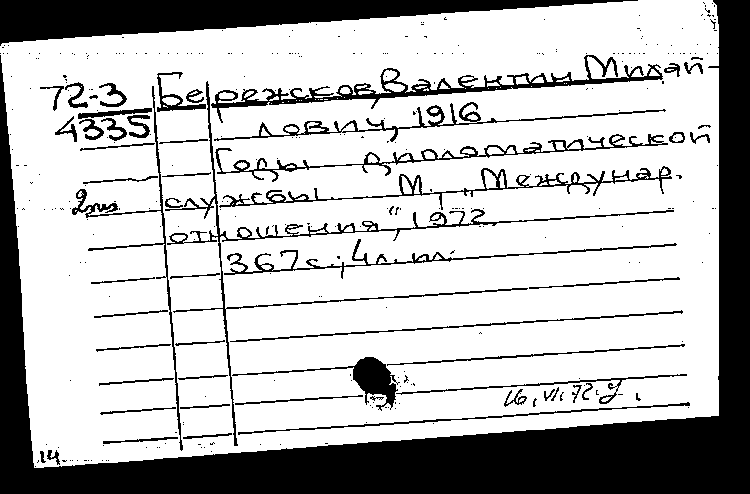 72-3 Бережков, Валентин Михай-
4335 лович, 1916.
Годы дипломатической
2экз службы. М., „Междунар.
отношения“, 1972.
367с.; 4л. ил.
16.VI.72.
14